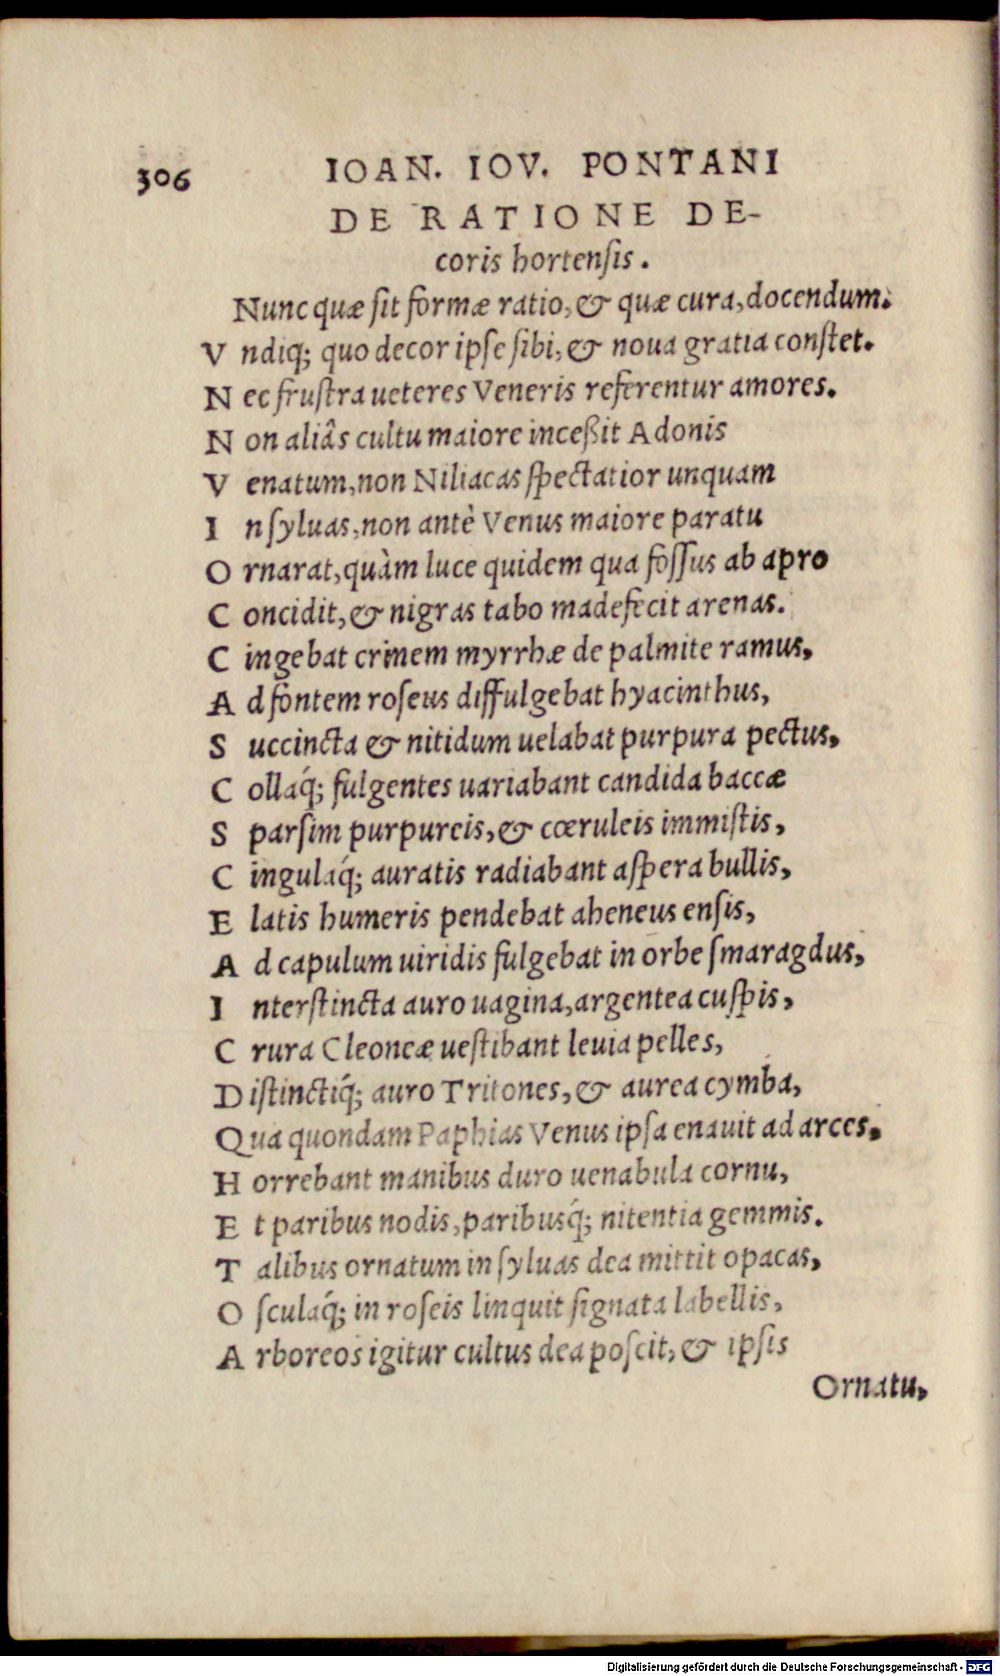 306 IOAN. IOV. PONTANI
DE RATIONE DE-
coris hortensis.
Nunc quæ sit formæ ratio, & quæ cura, docendum.
V ndiq; quo decor ipse sibi, & noua gratia constet.
N ec frustra ueteres Veneris referentur amores.
N on aliâs cultu maiore inceßit Adonis
V enatum, non Niliacas spectatior unquam
I n syluas, non antè Venus maiore paratu
O rnarat, quàm luce quidem qua fossus ab apro
C oncidit, & nigras tabo madefecit arenas.
C ingebat crinem myrrhæ de palmite ramus,
A d fontem roseus diffulgebat hyacinthus,
S uccincta & nitidum uelabat purpura pectus,
C ollaq́; fulgentes uariabant candida baccæ
S parsim purpureis, & cœruleis immistis,
C ingulaq́; auratis radiabant aspera bullis,
E latis humeris pendebat aheneus ensis,
A d capulum uiridis fulgebat in orbe smaragdus,
I nterstincta auro uagina, argentea cuspis,
C rura Cleoneæ uestibant leuia pelles,
D istinctiq́; auro Tritones, & aurea cymba,
Q ua quondam Paphias Venus ipsa enauit ad arces,
H orrebant manibus duro uenabula cornu,
E t paribus nodis, paribusq́; nitentia gemmis.
T alibus ornatum in syluas dea mittit opacas,
O sculaq́; in roseis linquit signata labellis,
A rboreos igitur cultus dea poscit, & ipsis
Ornatu,
Digitalisierung gefördert durch die Deutsche Forschungsgemeinschaft - DFG